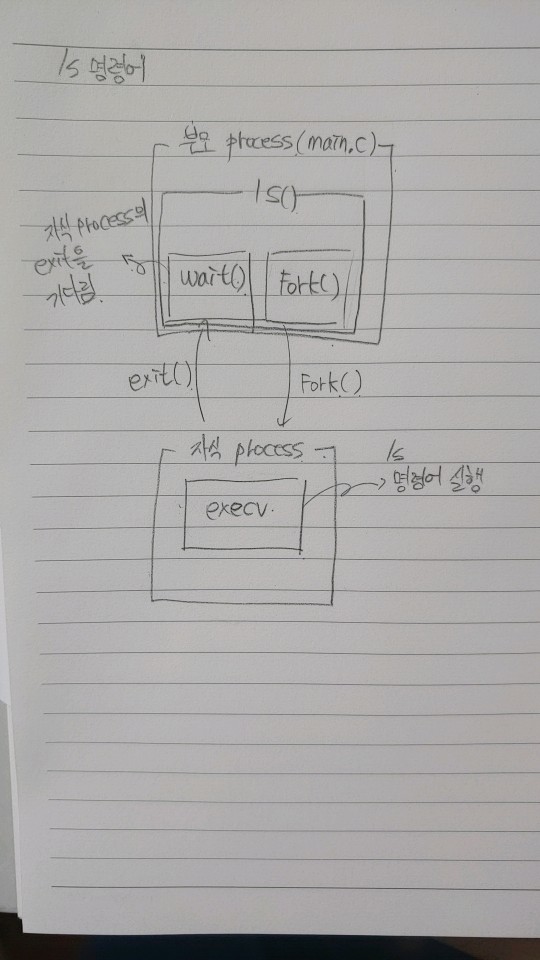 ls 명령어
부모 process(main.c)
ls()
자식 process의
exit을
기다림.
wait()
Fork()
exit()
Fork()
자식 process
ls
명령어 실행
execv.